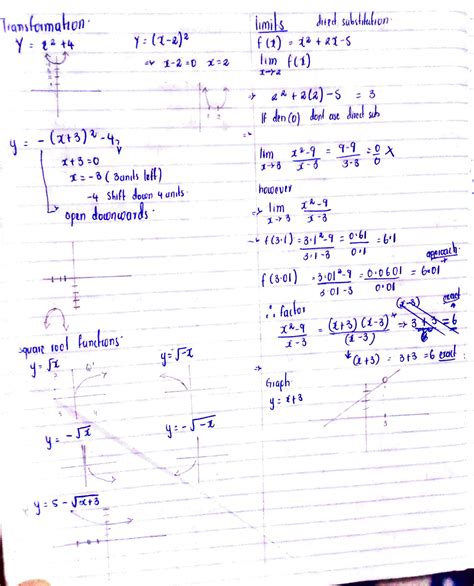 Transformation.
y = x² + 4
y = (x-2)²
x-2=0 x=2
y = -(x+3)² -4,
x+3=0
x = -3 (3 units left)
-4 shift down 4 units
open downwards.
square root functions.
y=√x
y=√-x
y= -√x
y= -√-x
y= 5 - √x+3
limits direct substitution
f(x) = x² + 2x-5
lim f(x)
x→2
2² + 2(2) - 5 = 3
If den(0) dont use direct sub
lim x²-9 = 9-9 = 0 ×
x→3 x-3 3-3 0
however
lim x²-9
x→3 x-3
f(3.1) = 3.1²-9 = 0.61 = 6.1
3.1-3 0.1
approach
f(3.01) = 3.01²-9 = 0.0601 = 6.01
3.01-3 0.01
exact
∴ factor (x-3)
x²-9 = (x+3)(x-3) ⇒ 3+3 = 6
x-3 (x-3)
(x+3) = 3+3 = 6 exact
Graph
y= x+3
3